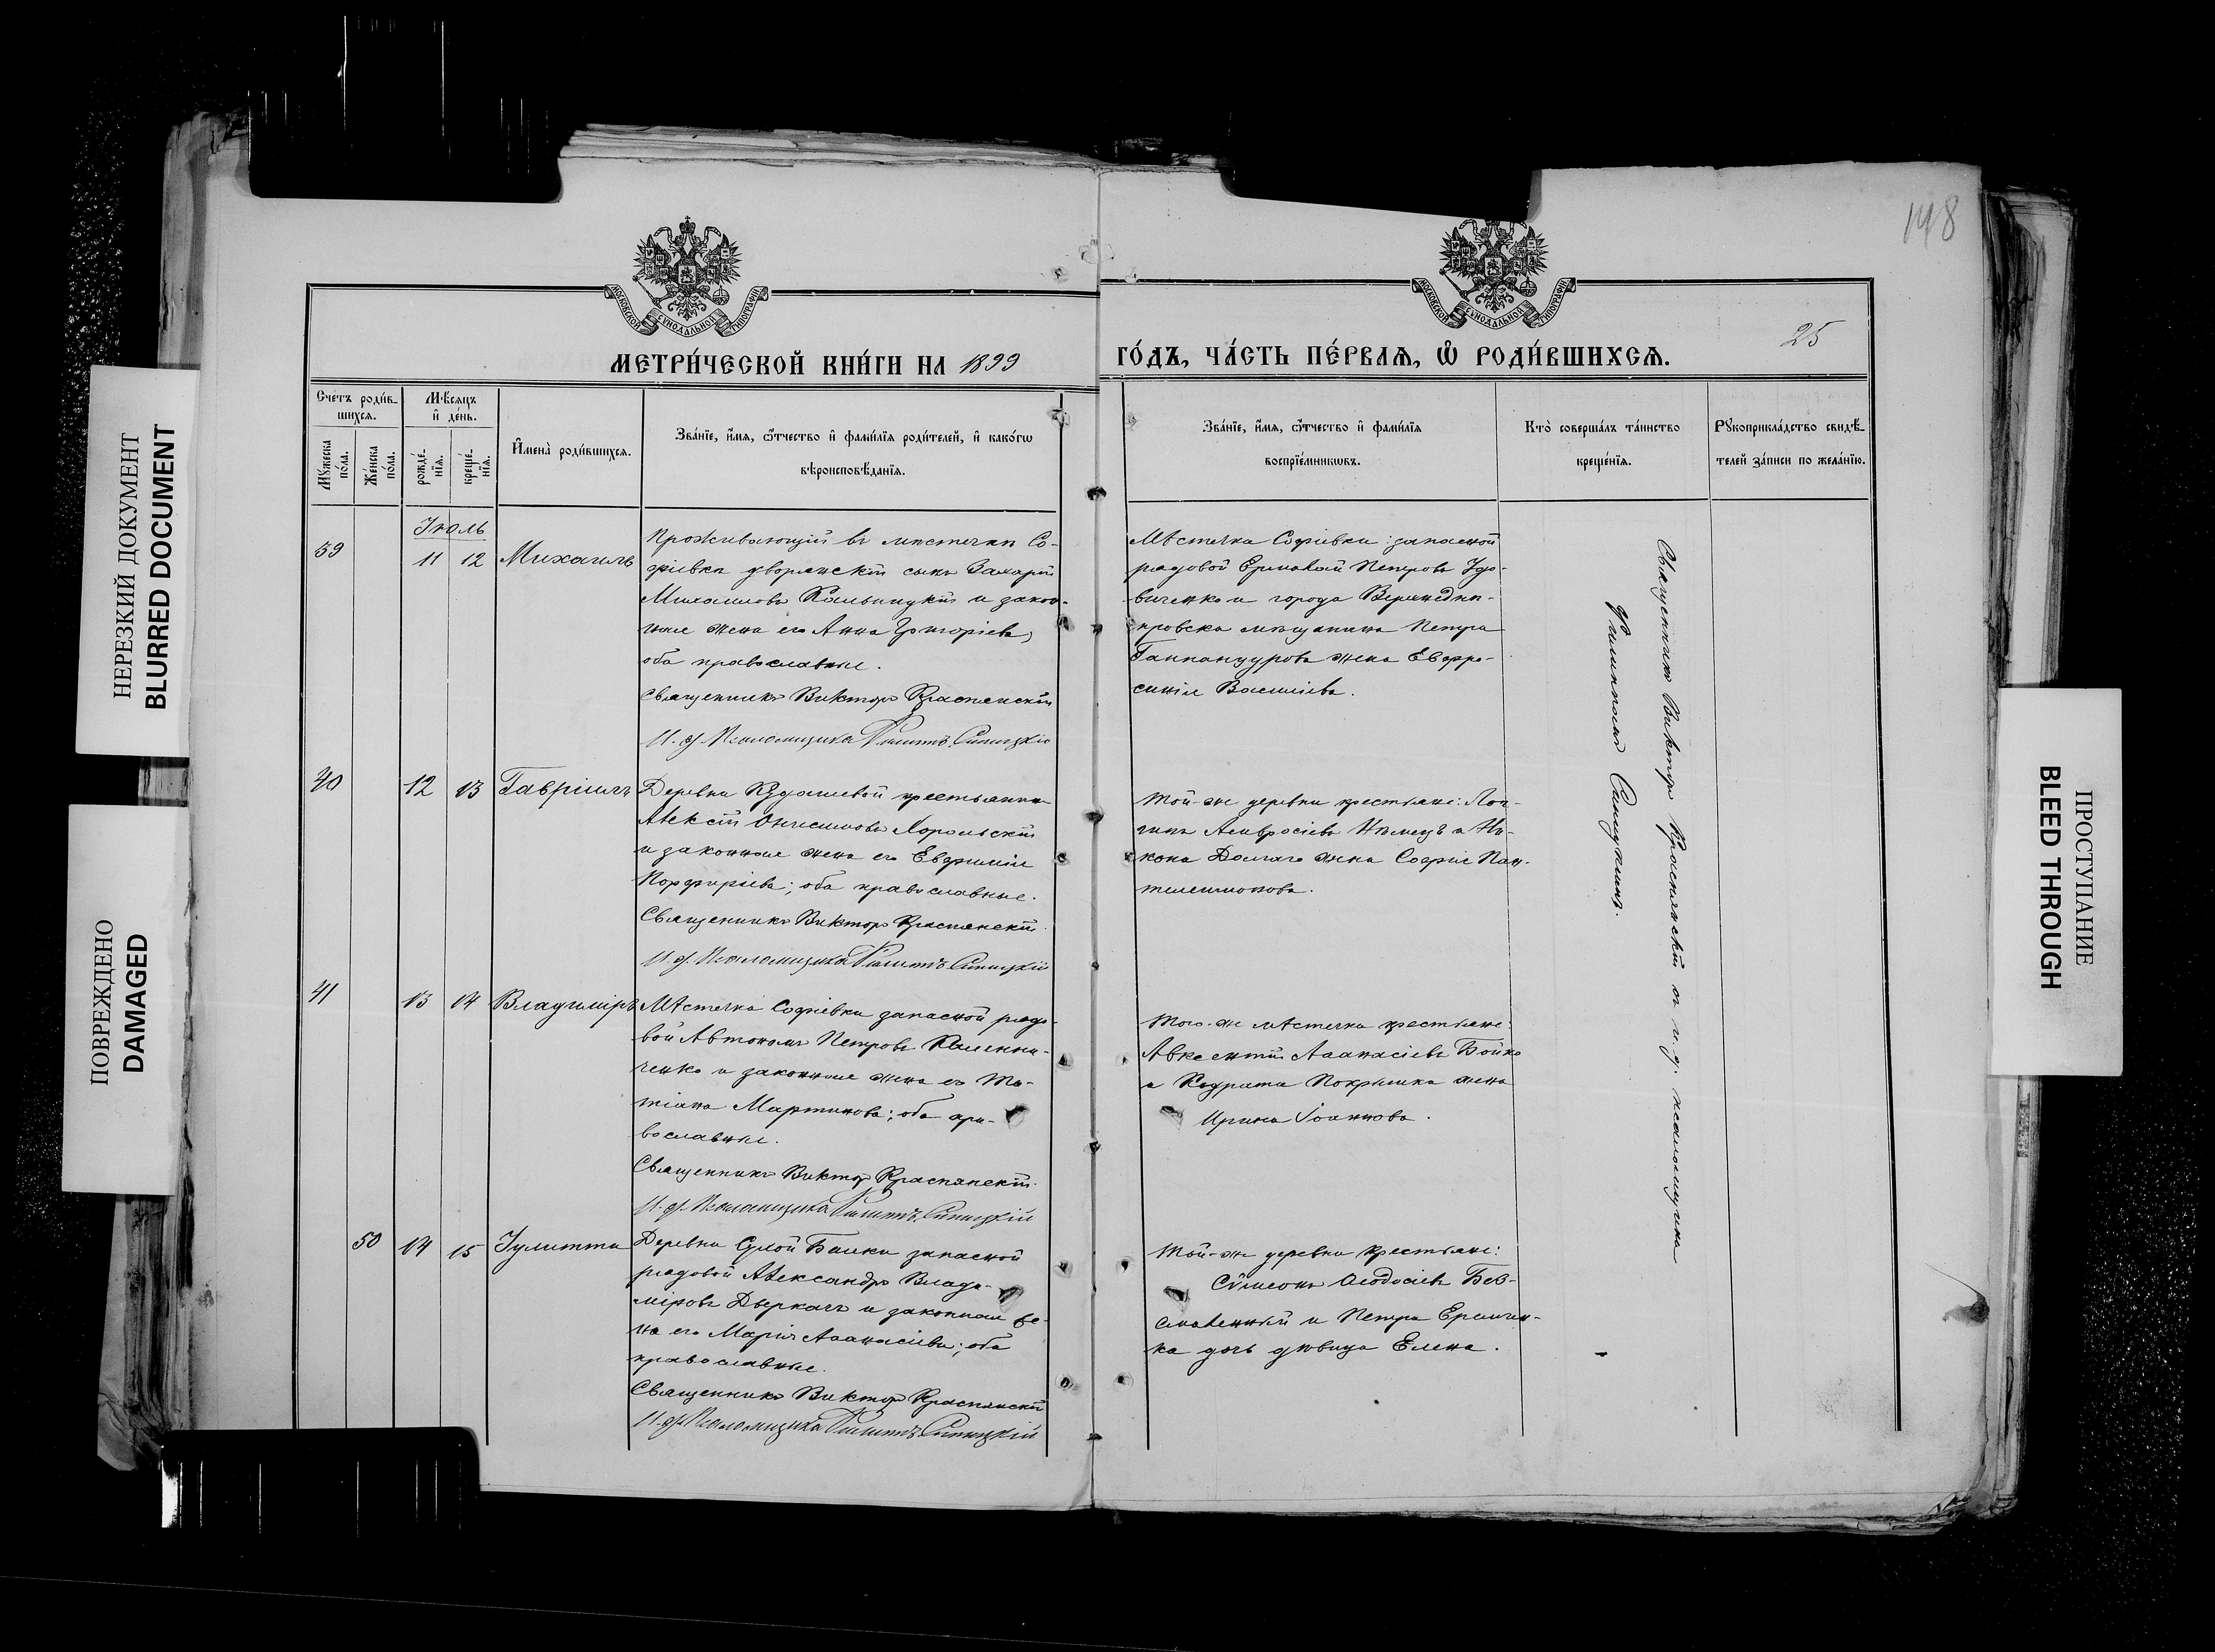 148
МОСКОВСКОЙ СУНОДАЛЬНОЙ ТИПОГРАФІИ
МОСКОВСКОЙ СУНОДАЛЬНОЙ ТИПОГРАФІИ
25
МЕТРИ́ЧЕСКОЙ КНИ́ГИ НА 1899
ГО́ДЪ, ЧА́СТЬ ПЕ́РВАѦ, Ѽ РОДИ́ВШИХСѦ.
Сче́тъ роди́в-
шихсѧ.
Мꙋжеска по́ла.
Же́нска по́ла.
Мѣ́сѧцъ
и҆ де́нь.
рожде́-
нїѧ.
креще́-
нїѧ.
И҆мена̀ роди́вшихсѧ.
Зва́нїе, и҆́мѧ, ѻ҆́тчество и҆ фами́лїѧ роди́телей, и҆ како́гѡ
вѣроисповѣ́данїѧ.
Зва́нїе, и҆́мѧ, ѻ҆́тчество и҆ фами́лїѧ
воспрїе́мникѡвъ.
Кто̀ соверша́лъ та́инство
креще́нїѧ.
Рꙋкоприкла́дство свидѣ́-
телей за́писи по жела́нїю.
Іюль
39 11 12 Михаилъ
Проживающій въ мѣстечкѣ Со-
фіевкѣ дворянскій сынъ Захарій
Михаиловъ и закон-
ная жена его Анна Григоріева,
оба православные.
Священникъ Викторъ Краснянскій
И. д. Псаломщика Филиппъ Синицкій
Мѣстечка Софіевки: запасной
рядовой Ермолай Петровъ Удо-
виченко и города Верхнеднѣ-
провска мѣщанина Петра
жена Евфро-
синія Васильева.
40 12 13 Гавріилъ
Деревни Кудашевой крестьянинъ
Алексій Онисимовъ Хорольскій
и законная жена его Евфимія
Порфиріева; оба православные.
Священникъ Викторъ Краснянскій
И. д. Псаломщика Филиппъ Синицкій
Той-же деревни крестьяне: Лон-
гинъ Амвросіевъ Нѣмецъ и Ни-
кона Долгаго жена Софія Пан-
телеимонова.
41 13 14 Владиміръ
Мѣстечка Софіевки запасной рядо-
вой Автономъ Петровъ Калени-
ченко и законная жена его Та-
тіана Мартинова; оба пра-
вославные.
Священникъ Викторъ Краснянскій
И. д. Псаломщика Филиппъ Синицкій
Того-же мѣстечка крестьяне:
Авксентій Аѳанасіевъ Бойко
и Кодрата Покрышка жена
Ирина Іоаннова.
50 14 15 Іулитта
Деревни Сухой Балки запасной
рядовой Александръ Влади-
міровъ Деркачъ и законная же-
на его Марія Аѳанасіева; оба
православные.
Священникъ Викторъ Краснянскій
И. д. Псаломщика Филиппъ Синицкій
Той-же деревни крестьяне:
Сѵмеонъ Ѳеодосіевъ Без-
и Петра
ка дочь дѣвица Елена.
Священникъ Викторъ Краснянскій съ и. д. псаломщика
Филиппомъ Синицкимъ.
НЕРЕЗКИЙ ДОКУМЕНТ
BLURRED DOCUMENT
ПОВРЕЖДЕНО
DAMAGED
ПРОСТУПАНИЕ
BLEED THROUGH